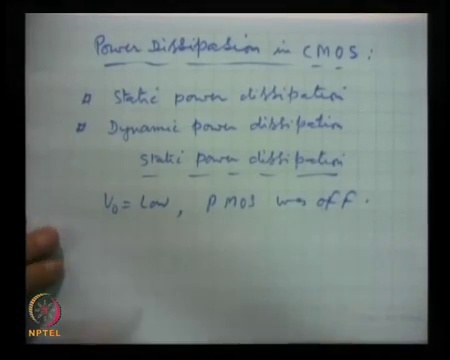 Power Dissipation in CMOS:
Static power dissipation
Dynamic power dissipation
static power dissipation
V₀ = Low, PMOS was off.
NPTEL